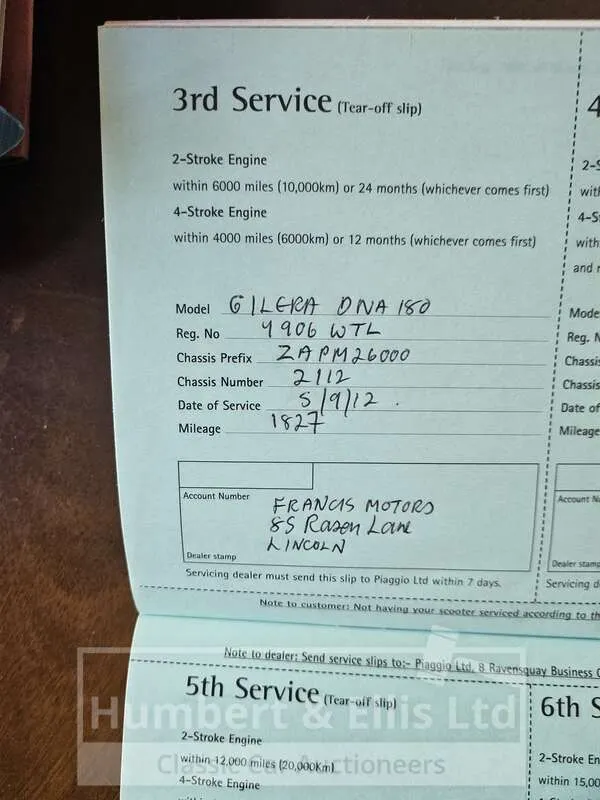 3rd Service (Tear-off slip)
2-Stroke Engine
within 6000 miles (10,000km) or 24 months (whichever comes first)
4-Stroke Engine
within 4000 miles (6000km) or 12 months (whichever comes first)
Model GILERA DNA 180
Reg. No Y906 WTL
Chassis Prefix ZAPM26000
Chassis Number 2112
Date of Service 5/9/12 .
Mileage 1827
Account Number
FRANCIS MOTORS
85 Rasen Lane
LINCOLN
Dealer stamp
Servicing dealer must send this slip to Piaggio Ltd within 7 days.
4
2-S
with
4-S
with
and
Mode
Reg. N
Chassis
Chassis
Date of
Mileage
Account Nu
Dealer stamp
Servicing d
Note to customer: Not having your scooter serviced according to th
Note to dealer: Send service slips to:- Piaggio Ltd, 8 Ravensquay Business C
5th Service (Tear-off slip)
2-Stroke Engine
within 12,000 miles (20,000km)
4-Stroke Engine
6th S
2-Stroke En
within 15,00
Humbert & Ellis Ltd
Classic Car Auctioneers